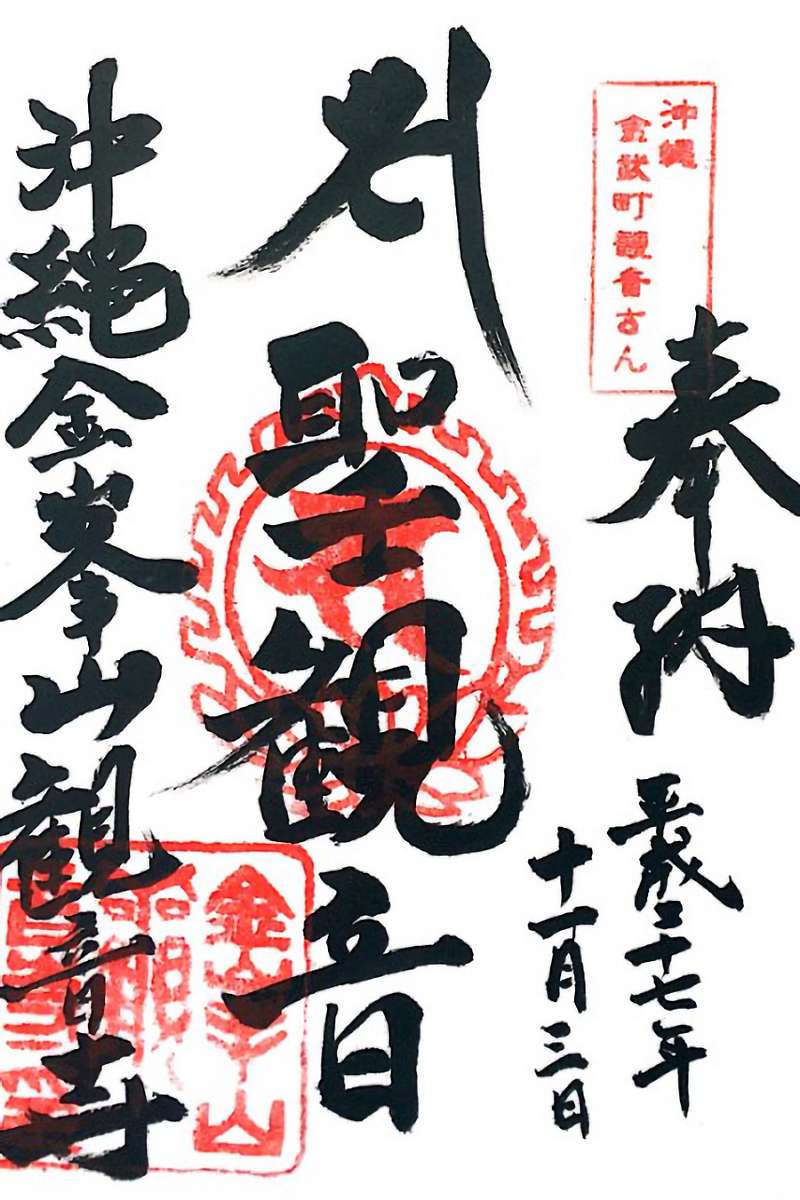 沖縄
金武町観音さん
奉納
平成二十七年
十一月三日
聖観音
沖縄金峯山観音寺
金峯山